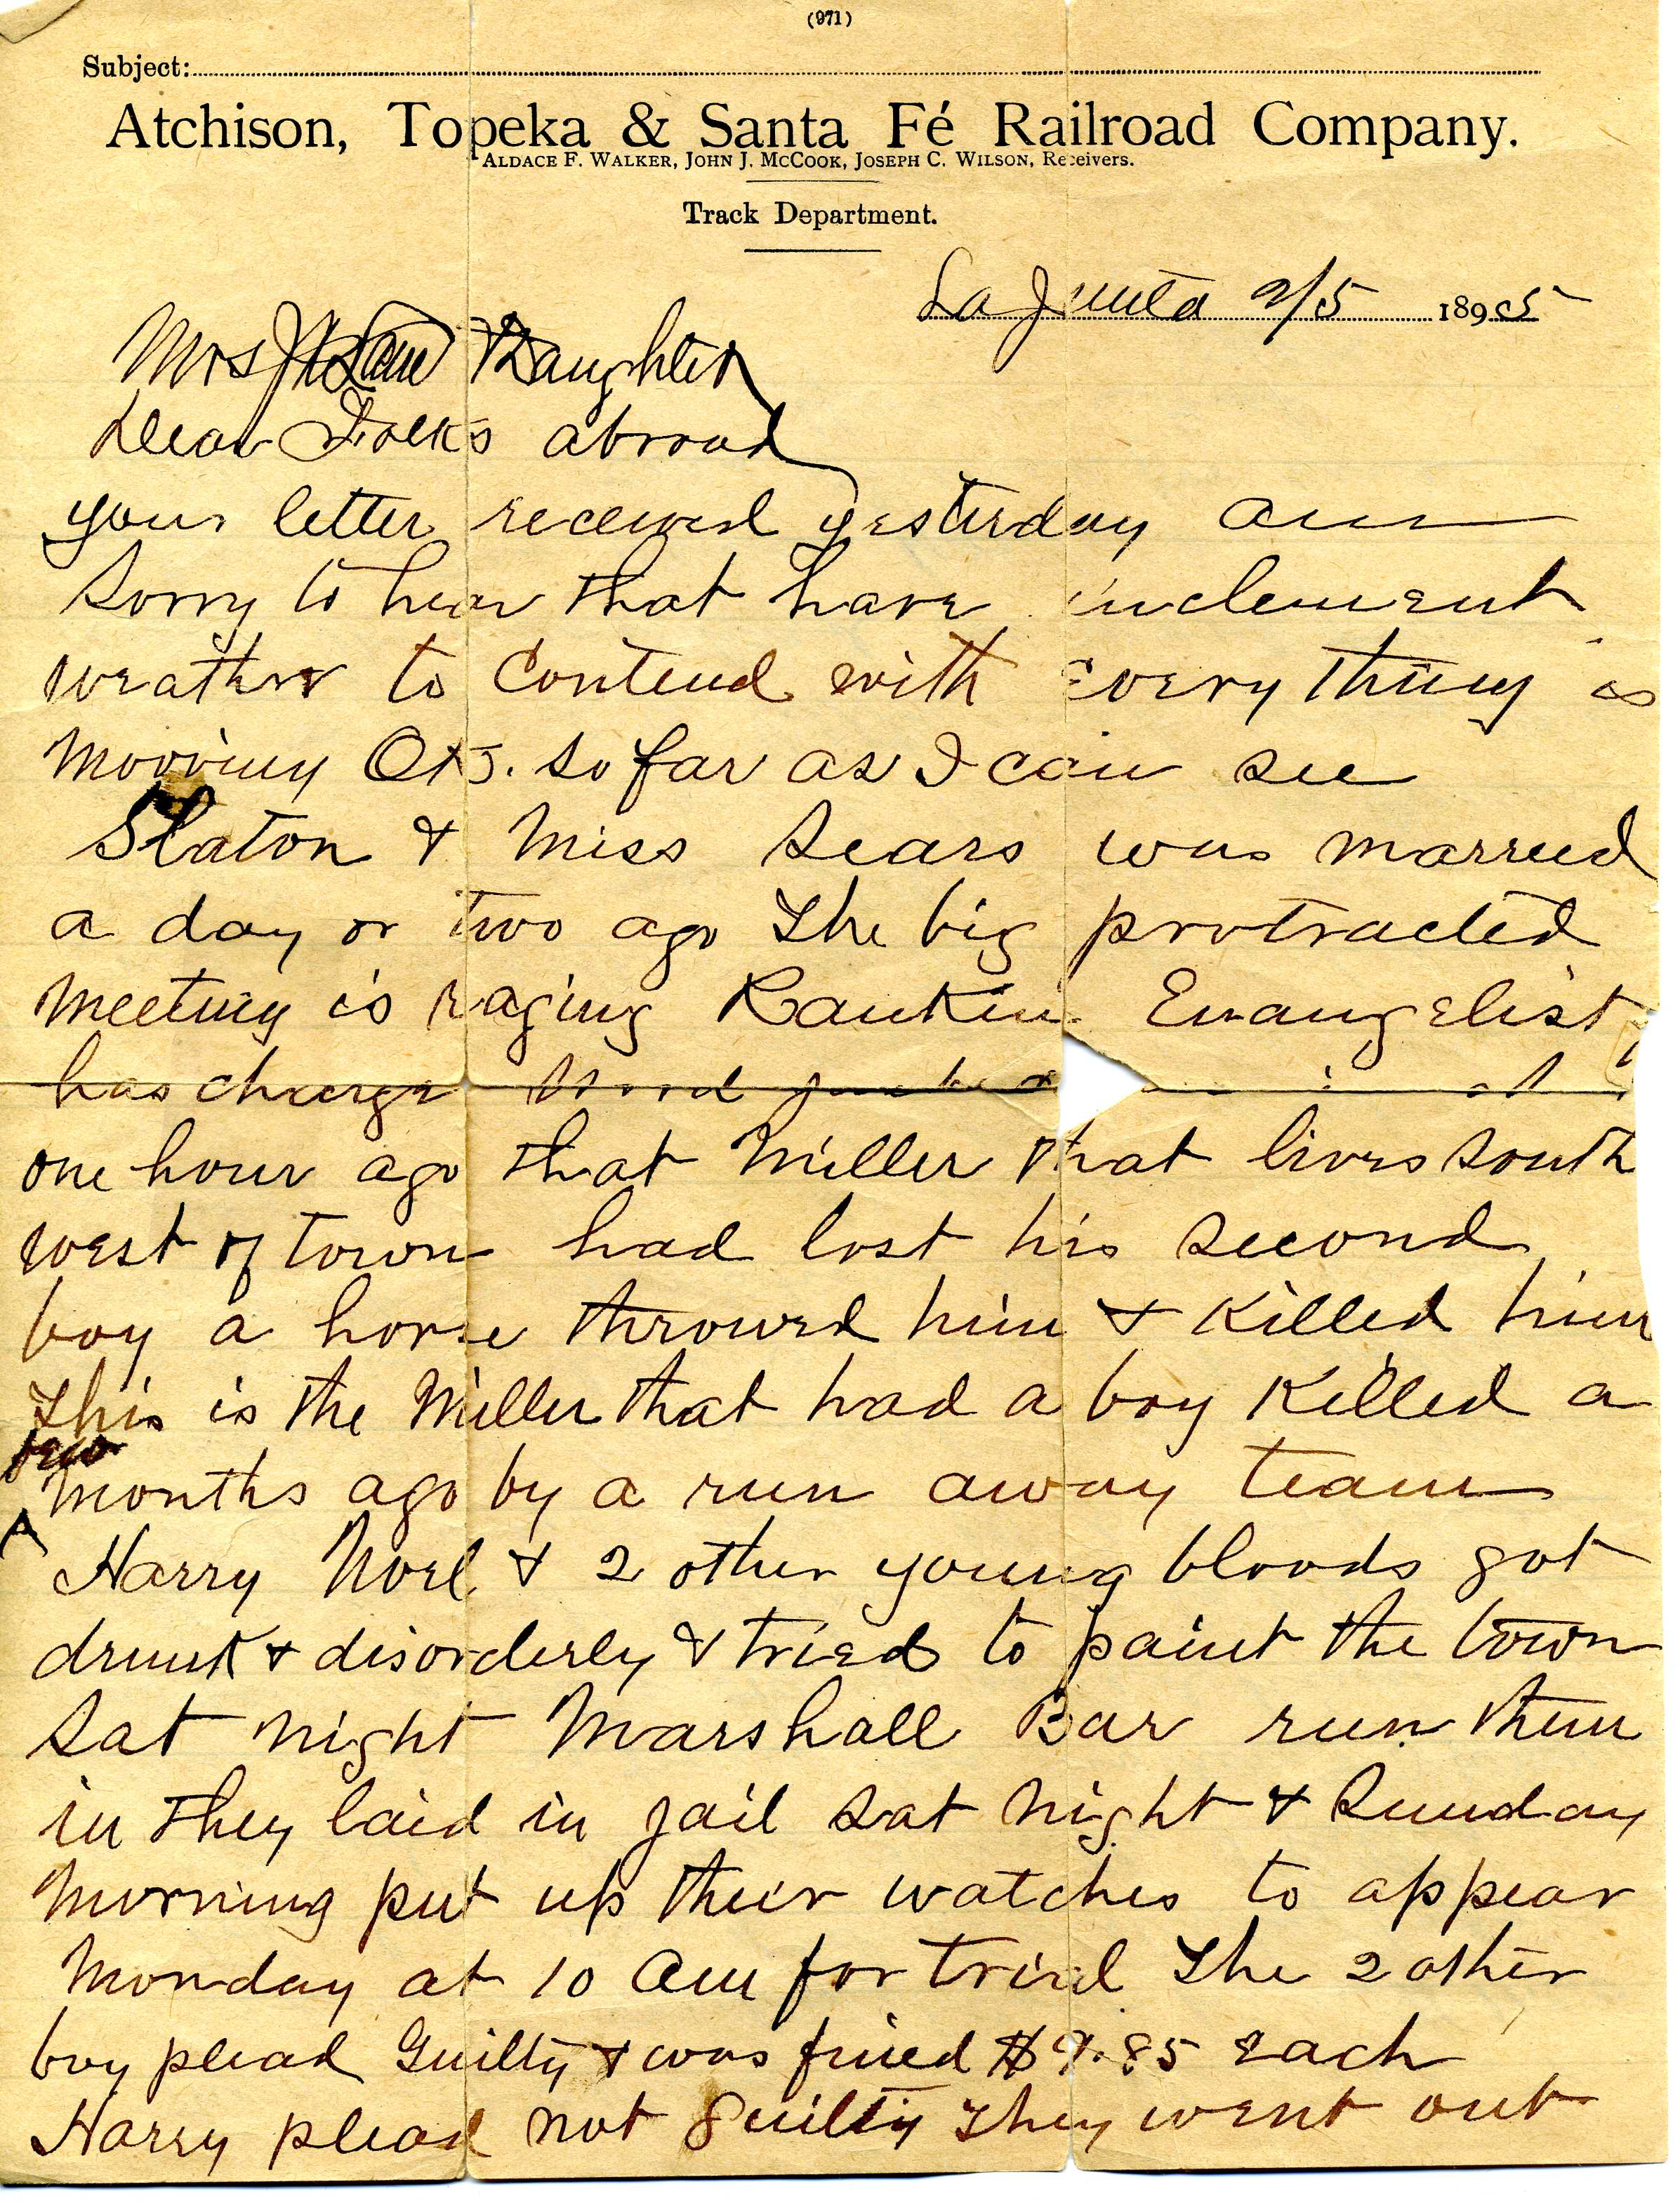 (971)
Subject:
Atchison, Topeka & Santa Fé Railroad Company.
ALDACE F. WALKER, JOHN J. MCCOOK, JOSEPH C. WILSON, Receivers.
Track Department.
La Junta 2/5 1895
Mrs & Daughter
Dear Folks abroad
your letter received yesterday am
Sorry to hear that have inclement
weather to contend with every thing is
mooving OK. so far as I can see
Slaton & Miss Sears was married
a day or two ago The big protracted
meeting is raging Rankin Evangelist
has charge Word
one hour ago that Miller that lives South
west of town had lost his second
boy a horse throwed him & Killed him
This is the Miller that had a boy Killed a
few
months ago by a run away team
Harry Noel & 2 other young bloods got
drunk & disorderly & tried to paint the town
Sat night Marshall Bar run them
in they laid in jail Sat night & Sunday
morning put up their watches to appear
Monday at 10 am for trial The 2 other
boy plead Guilty & was fined $9.85 each
Harry plead not guilty They went out